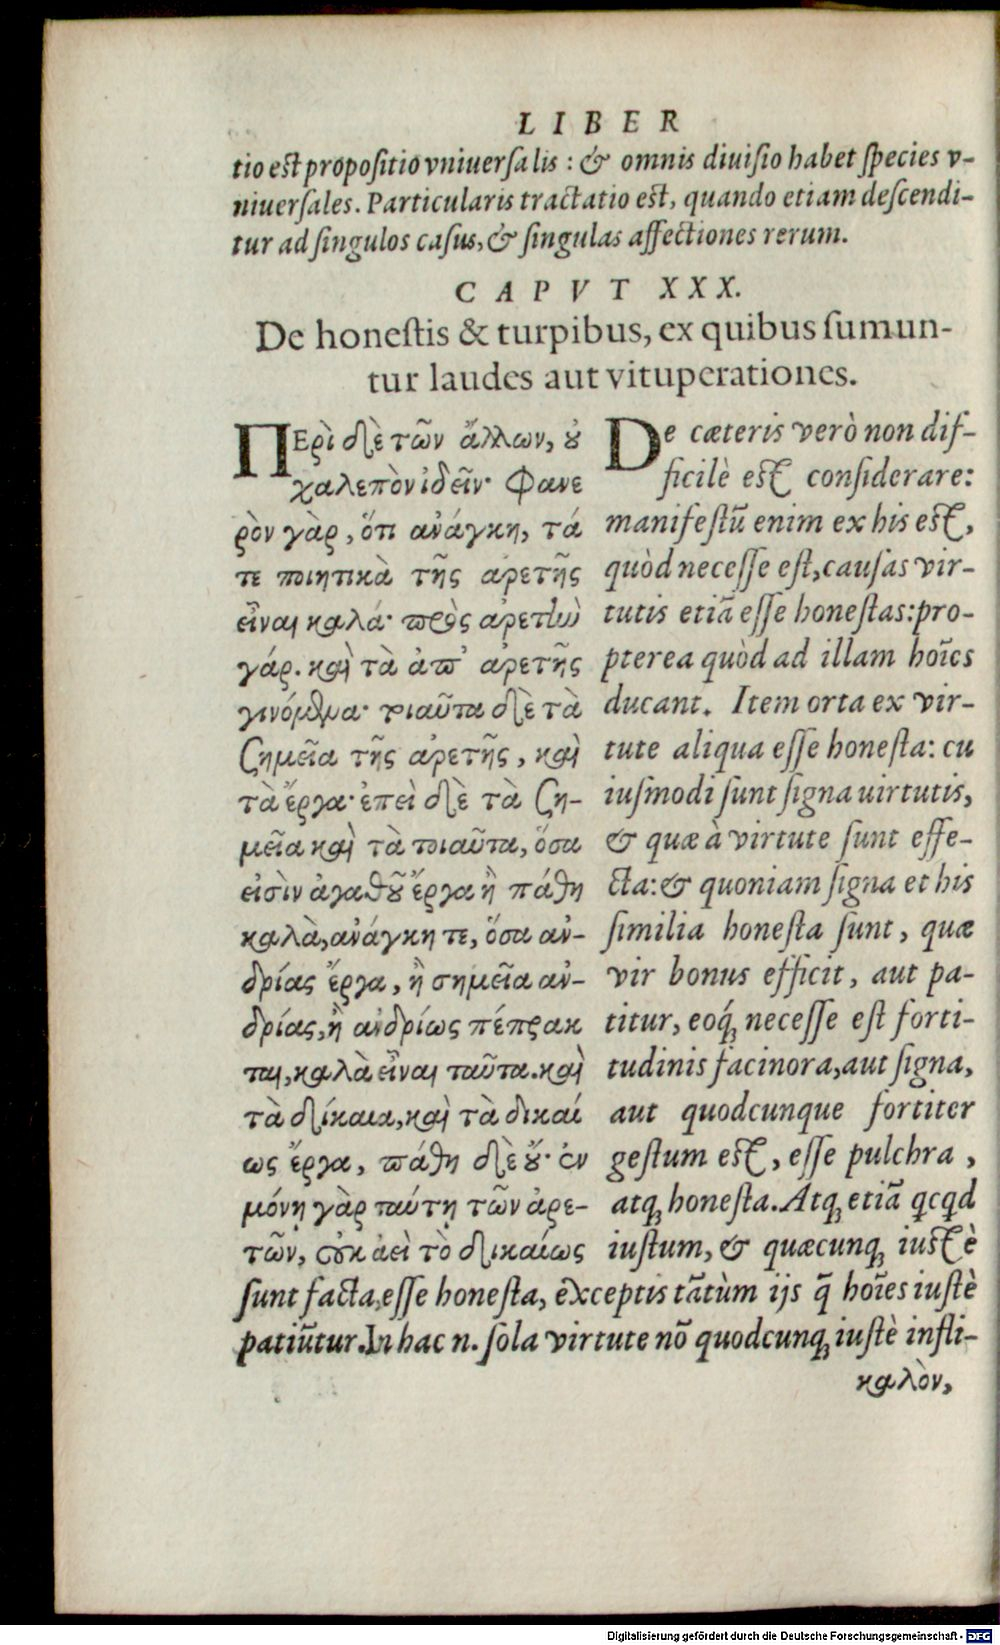 LIBER
tio est propositio vniuersalis : & omnis diuisio habet species v-
niuersales. Particularis tractatio est, quando etiam descendi-
tur ad singulos casus, & singulas affectiones rerum.
CAPVT XXX.
De honestis & turpibus, ex quibus sumun-
tur laudes aut vituperationes.
ΠΕρὶ δὲ τῶν ἄλλων, οὐ
χαλεπὸν ἰδεῖν· Φανε
ρὸν γὰρ, ὅτι ἀνάγκη, τά
τε ποιητικὰ τῆς ἀρετῆς
εἶναι καλά· πρὸς ἀρετὴν
γάρ. καὶ τὰ ἀπ' ἀρετῆς
γινόμενα· τοιαῦτα δὲ τὰ
σημεῖα τῆς ἀρετῆς, καὶ
τὰ ἔργα· ἐπεὶ δὲ τὰ ση-
μεῖα καὶ τὰ τοιαῦτα, ὅσα
εἰσὶν ἀγαθοῦ ἔργα ἢ πάθη
καλὰ, ἀνάγκη τε, ὅσα ἀν-
δρίας ἔργα, ἢ σημεῖα ἀν-
δρίας, ἢ ἀνδρίως πέπρακ
ται, καλὰ εἶναι ταῦτα. καὶ
τὰ δίκαια, καὶ τὰ δικαί
ως ἔργα, πάθη δὲ οὔ· ἐν
μόνῃ γὰρ ταύτῃ τῶν ἀρε-
τῶν, οὐκ ἀεὶ τὸ δικαίως
De cæteris verò non dif-
ficilè est considerare:
manifestū enim ex his est,
quòd necesse est, causas vir-
tutis etiā esse honestas: pro-
pterea quòd ad illam hoīes
ducant. Item orta ex vir-
tute aliqua esse honesta: cu
iusmodi sunt signa uirtutis,
& quæ à virtute sunt effe-
cta: & quoniam signa et his
similia honesta sunt, quæ
vir bonus efficit, aut pa-
titur, eoq́; necesse est forti-
tudinis facinora, aut signa,
aut quodcunque fortiter
gestum est, esse pulchra,
atq; honesta. Atq; etiā qcqd
iustum, & quæcunq; iustè
sunt facta, esse honesta, exceptis tātùm ijs q̄ hoīes iustè
patiūtur. In hac n. sola virtute nō quodcunq; iustè infli-
καλὸν,
Digitalisierung gefördert durch die Deutsche Forschungsgemeinschaft - DFG